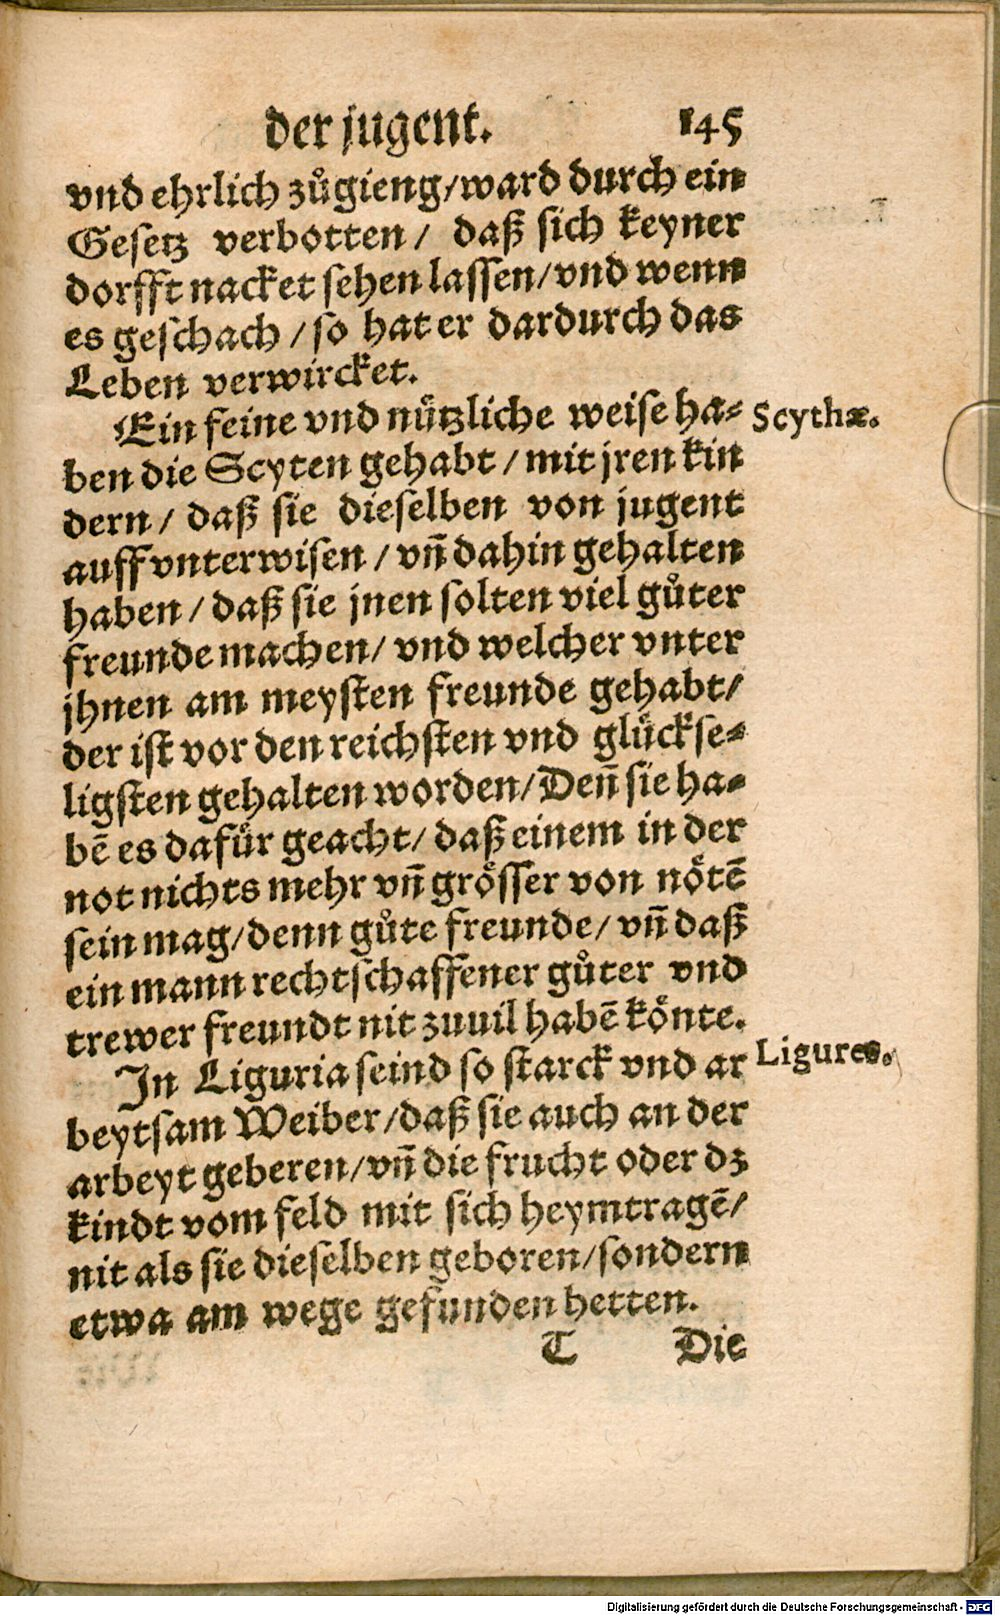 der jugent. 145
vnd ehrlich zůgieng/ward durch ein
Gesetz verbotten/ daß sich keyner
dorfft nacket sehen lassen/vnd wenn
es geschach/so hat er dardurch das
Leben verwircket.
Ein feine vnd nützliche weise ha- Scythæ.
ben die Scyten gehabt/mit jren kin
dern/ daß sie dieselben von jugent
auff vnterwisen/vñ dahin gehalten
haben/daß sie jnen solten viel gůter
freunde machen/ vnd welcher vnter
jhnen am meysten freunde gehabt/
der ist vor den reichsten vnd glückse-
ligsten gehalten worden/Deñ sie ha-
bẽ es dafür geacht/ daß einem in der
not nichts mehr vñ grösser von nötẽ
sein mag/denn gůte freunde/ vñ daß
ein mann rechtschaffener gůter vnd
trewer freundt nit zuuil habẽ könte.
In Liguria seind so starck vnd ar Ligures.
beytsam Weiber/daß sie auch an der
arbeyt geberen/vñ die frucht oder dz
kindt vom feld mit sich heymtragẽ/
nit als sie dieselben geboren/sondern
etwa am wege gefunden hetten.
T Die
Digitalisierung gefördert durch die Deutsche Forschungsgemeinschaft - DFG